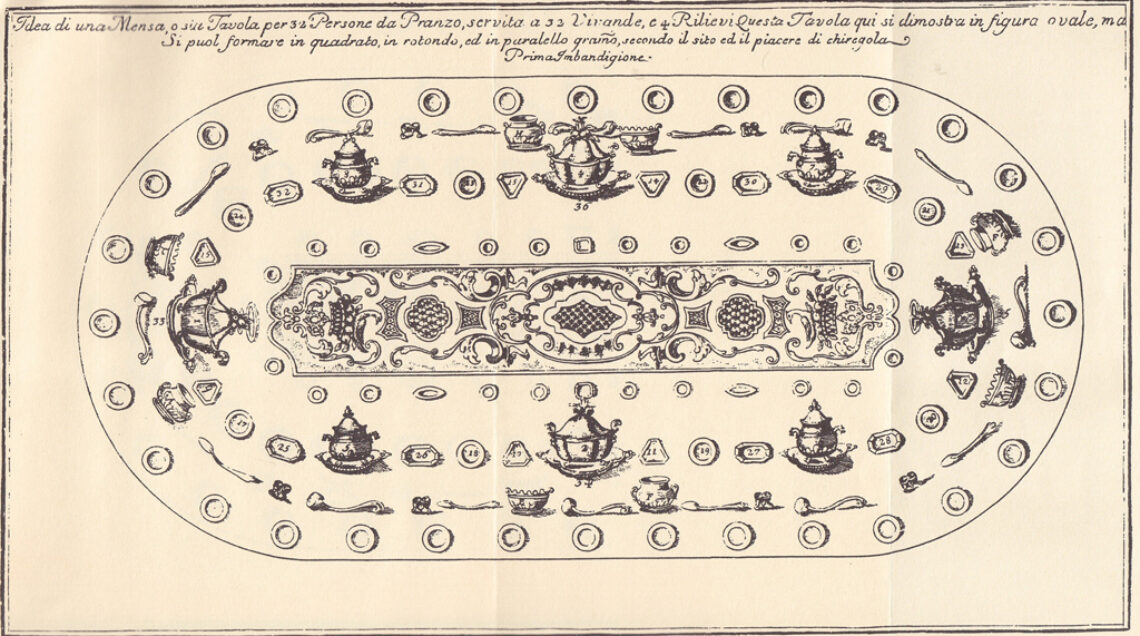 Idea di una Mensa, o sia Tavola per 32 Persone da Pranzo, servita a 32 Vivande, e 4 Rilievi Questa Tavola qui si dimostra in figura ovale, ma
Si puol formare in quadrato, in rotondo, ed in paralello gramõ, secondo il sito ed il piacere di chi regola
Prima Imbandigione.
32 31 13 4 14 30 7 29
36
15
33
25 26 18 2 11 19 27 28
12
17